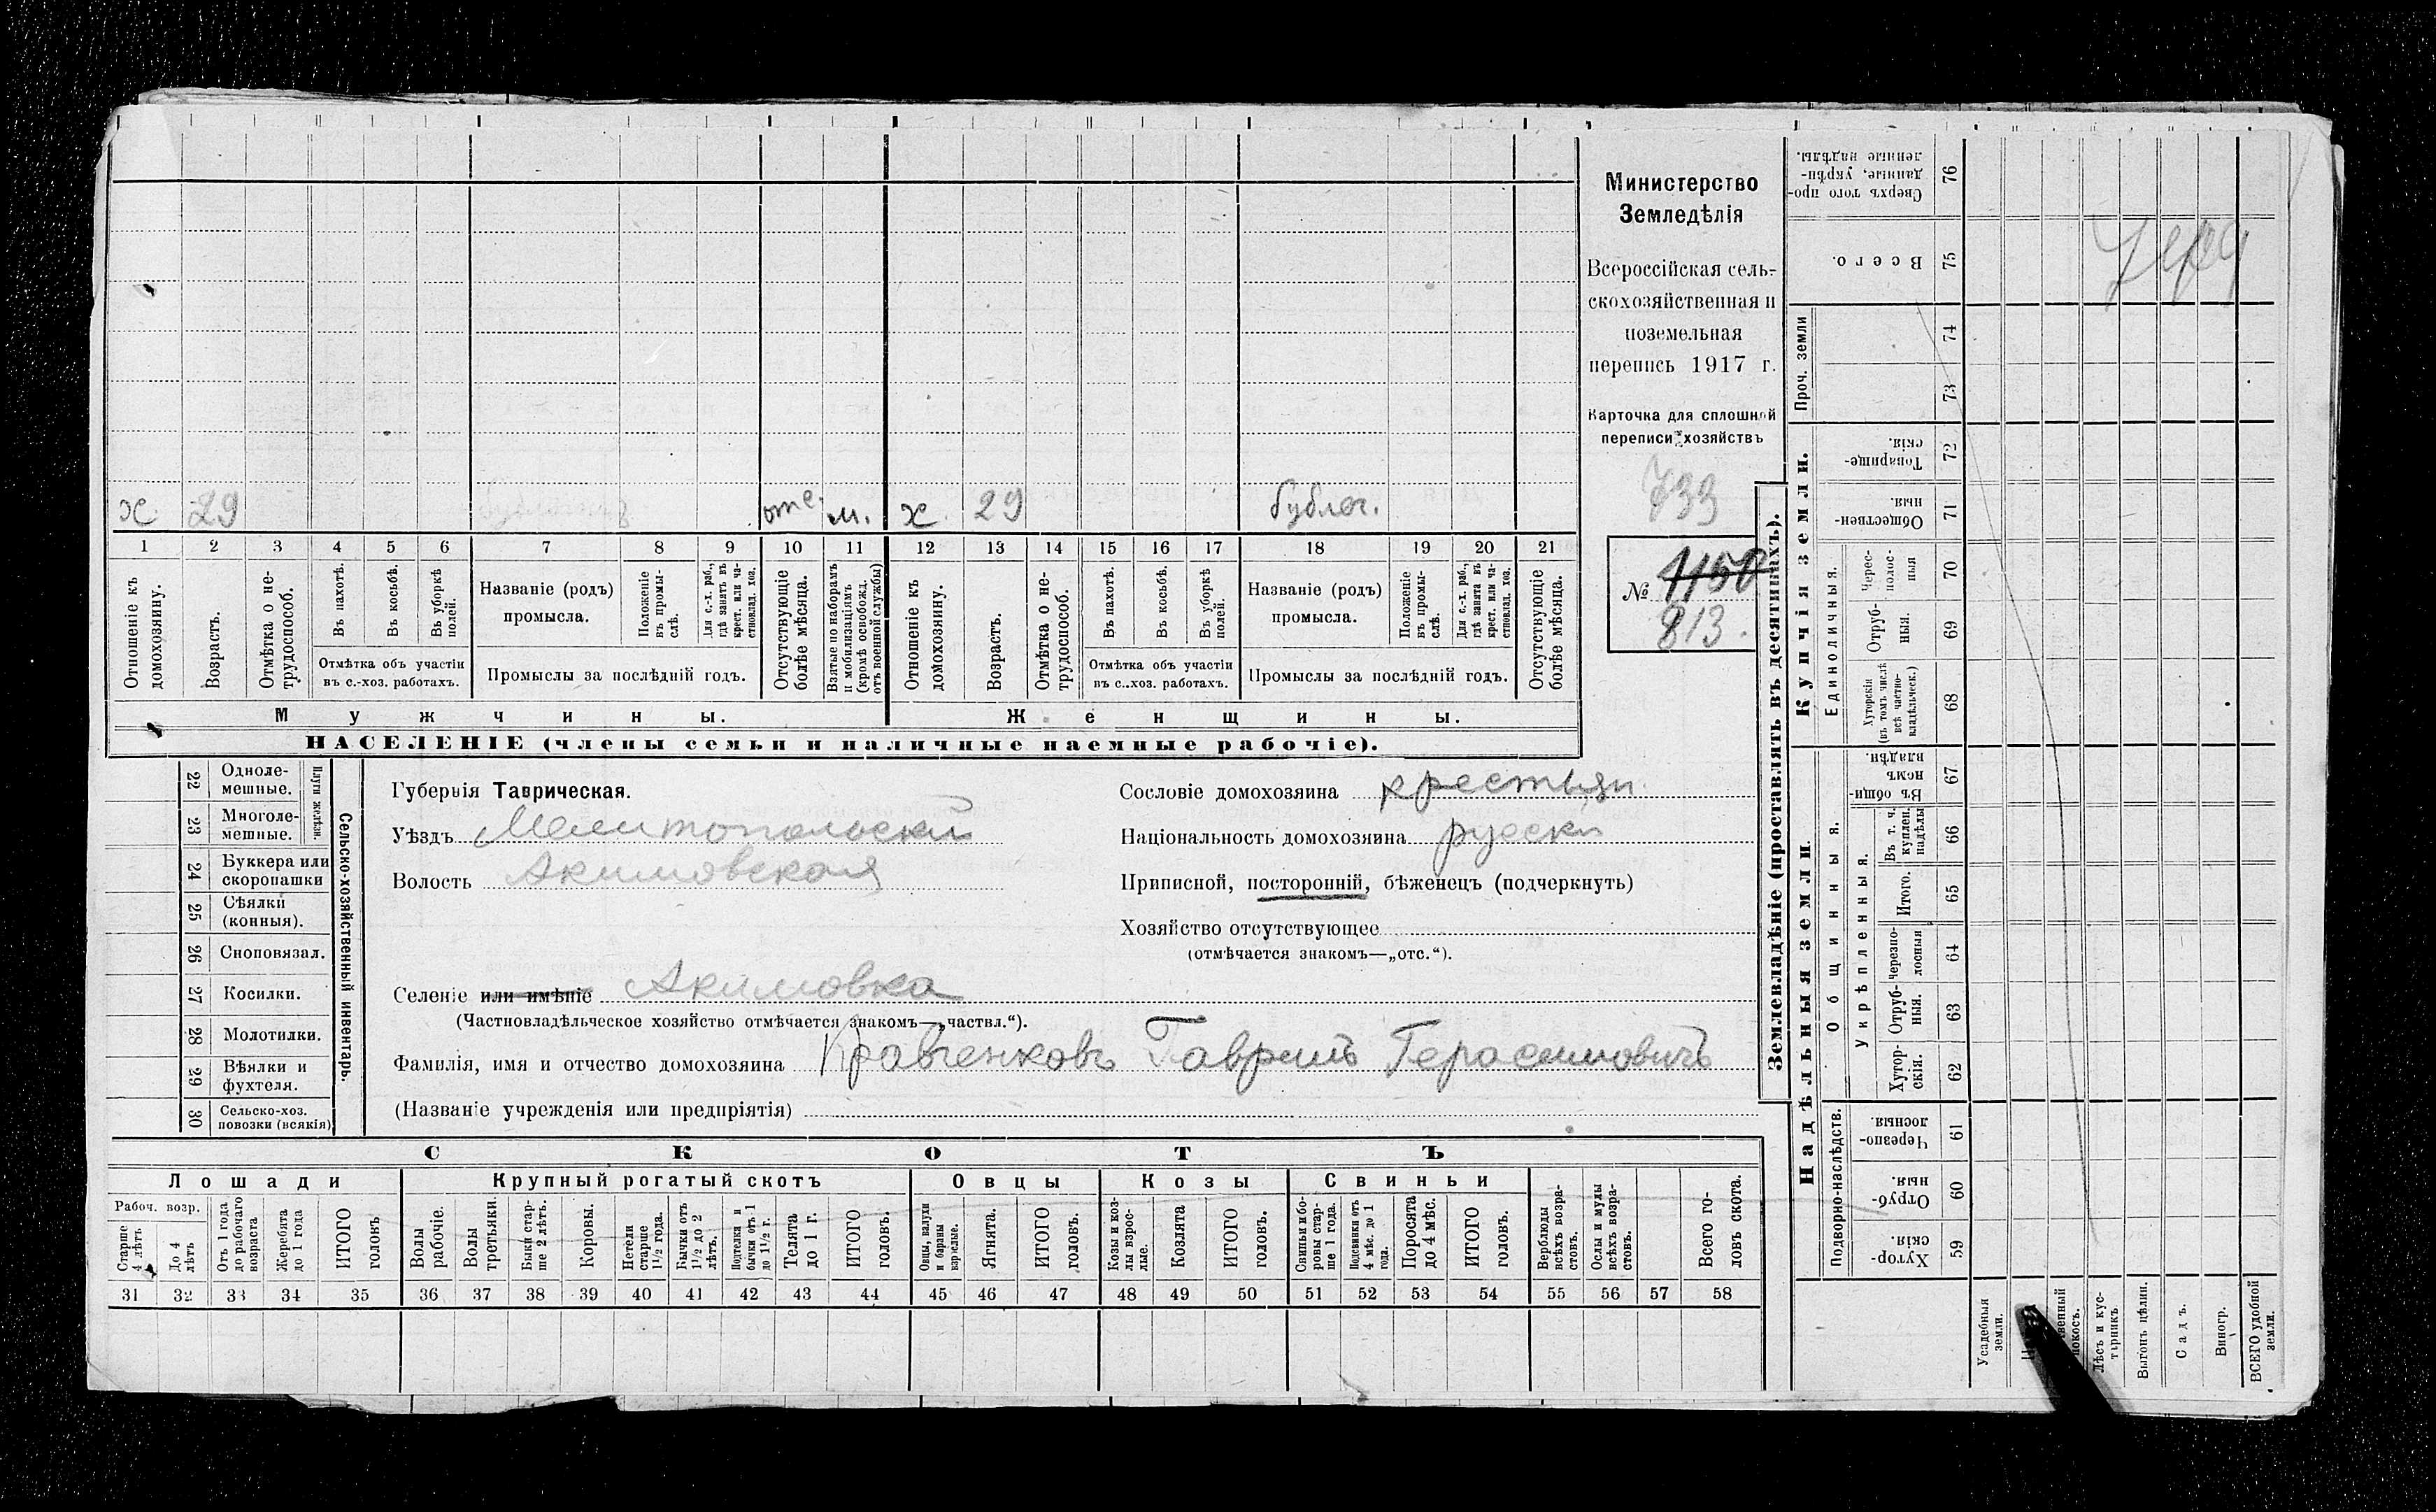 Министерство
Земледѣлія
Всероссійская сель-
скохозяйственная и
поземельная
перепись 1917 г.
Карточка для сплошной
переписи хозяйствъ
733
№ 1150
813.
х. 29 отс. м. х. 29 бублеч.
1 2 3 4 5 6 7 8 9 10 11 12 13 14 15 16 17 18 19 20 21
Отношеніе къ домохозяину.
Возрастъ.
Отмѣтка о не-трудоспособ.
Въ пахотѣ.
Въ косьбѣ.
Въ уборкѣ полей.
Отмѣтка объ участіи
въ с.-хоз. работахъ.
Названіе (родъ)
промысла.
Положеніе въ промы-слѣ.
Для с.-х. раб., гдѣ занятъ въ крест. или ча-стновлад. хоз.
Промыслы за послѣдній годъ.
Отсутствующіе болѣе мѣсяца.
Взятые по наборамъ и мобилизаціямъ (кромѣ освобожд. отъ военной службы)
Отношеніе къ домохозяину.
Возрастъ.
Отмѣтка о не-трудоспособ.
Въ пахотѣ.
Въ косьбѣ.
Въ уборкѣ полей.
Отмѣтка объ участіи
въ с..хоз. работахъ.
Названіе (родъ)
промысла.
Положеніе въ промы-слѣ.
Для с.-х. раб., гдѣ занята въ крест. или ча-стновлад. хоз.
Промыслы за послѣдній годъ.
Отсутствующіе болѣе мѣсяца.
Мужчины. Женщины.
НАСЕЛЕНІЕ (члены семьи и наличные наемные рабочіе).
Сельско-хозяйственный инвентарь.
Плуги желѣзн.
22 Одноле-мешные.
23 Многоле-мешные.
24 Буккера или скоропашки
25 Сѣялки (конныя).
26 Сноповязал.
27 Косилки.
28 Молотилки.
29 Вѣялки и фухтеля.
30 Сельско-хоз. повозки (всякія)
Губернія Таврическая.
Уѣздъ Мелитопольский
Волость Акимовская
Селеніе или имѣніе Акимовка
(Частновладѣльческое хозяйство отмѣчается знакомъ—„частвл.“).
Фамилія, имя и отчество домохозяина Кравченковъ Гавриилъ Герасимовичъ
(Названіе учрежденія или предпріятія)
Сословіе домохозяина крестьян.
Національность домохозяина русски
Приписной, посторонній, бѣженецъ (подчеркнуть)
Хозяйство отсутствующее
(отмѣчается знакомъ—„отс.“).
СКОТЪ
Лошади Крупный рогатый скотъ Овцы Козы Свиньи
Рабоч. возр.
Старше 4 лѣтъ
До 4 лѣтъ
Отъ 1 года до рабочаго возраста
Жеребята до 1 года
ИТОГО головъ
Волы рабочіе.
Волы третьяки.
Быки стар-ше 2 лѣтъ.
Коровы.
Нетели старше 1½ года.
Бычки отъ 1½ до 2 лѣтъ.
Подтелки и бычки отъ 1 до 1½ г.
Телята до 1 г.
ИТОГО головъ.
Овцы, валухи и бараны взрослые.
Ягнята.
ИТОГО головъ.
Козы и коз-лы взрос-лые.
Козлята
ИТОГО головъ.
Свиньи и бо-ровы стар-ше 1 года.
Подсвинки отъ 4 мѣс. до 1 года.
Поросята до 4 мѣс.
ИТОГО головъ.
Верблюды всѣхъ возра-стовъ.
Ослы и мулы всѣхъ возра-стовъ.
Всего го-ловъ скота.
31 32 33 34 35 36 37 38 39 40 41 42 43 44 45 46 47 48 49 50 51 52 53 54 55 56 57 58
Землевладѣніе (проставлять въ десятинахъ).
Купчія земли.
Надѣльныя земли.
Сверхъ того про-данные, укрѣп-ленные надѣлы. 76
Всего. 75
Проч. земли 74
73
Товарище-скія. 72
Обществен-ныя. 71
Единоличныя.
Черес-полос-ныя 70
Отруб-ныя. 69
Хуторскія (въ томъ числѣ всѣ частно-владѣльческ.) 68
Общинныя.
Въ общин-номъ владѣн. 67
Укрѣпленныя.
Въ т. ч. куплен. надѣлы 66
Итого. 65
Черезпо-лосныя 64
Отруб-ныя. 63
Хутор-скія. 62
Подворно-наслѣдств.
Черезпо-лосныя 61
Отруб-ныя. 60
Хутор-скія. 59
Усадебныя земли.
Лѣсъ и кус-тарникъ
Выгонъ цѣлин.
Садъ.
Виногр.
ВСЕГО удобной земли.